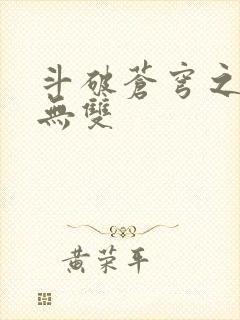 斗破蒼穹之
無雙
黄荣平